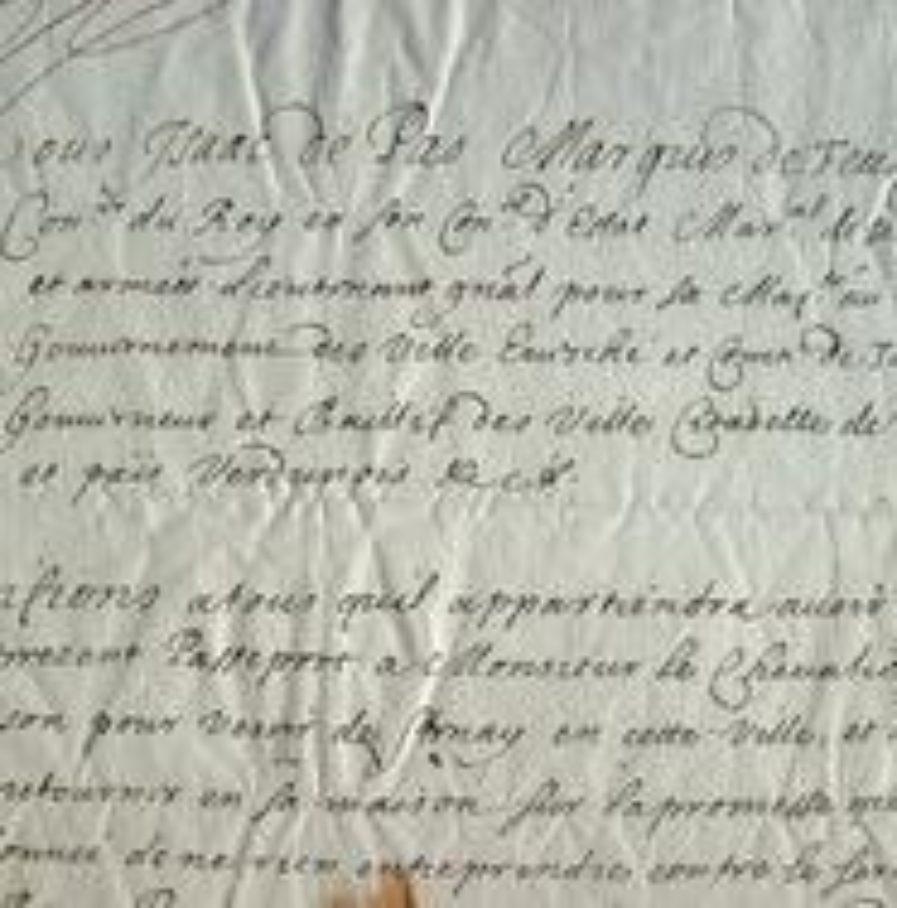 ous Isaac de Pas Marquis de Feu
Con.er du Roy en son Con.el d'Estat Mar.al de
et armées Lieutenant gnãl pour sa Maj.té au
Gouvernement des Ville Eveché et Comté de To
Gouverneur et Baillif des Villes Citadelles de
et païs Verdunois &c.a
ifions a tous quil appartiendra avoir
present Passeport a Monsieur le Chevalie
son pour venir de en cette ville, et
retourner en sa maison sur la promesse
onnée de ne rien entreprendre contre le ser